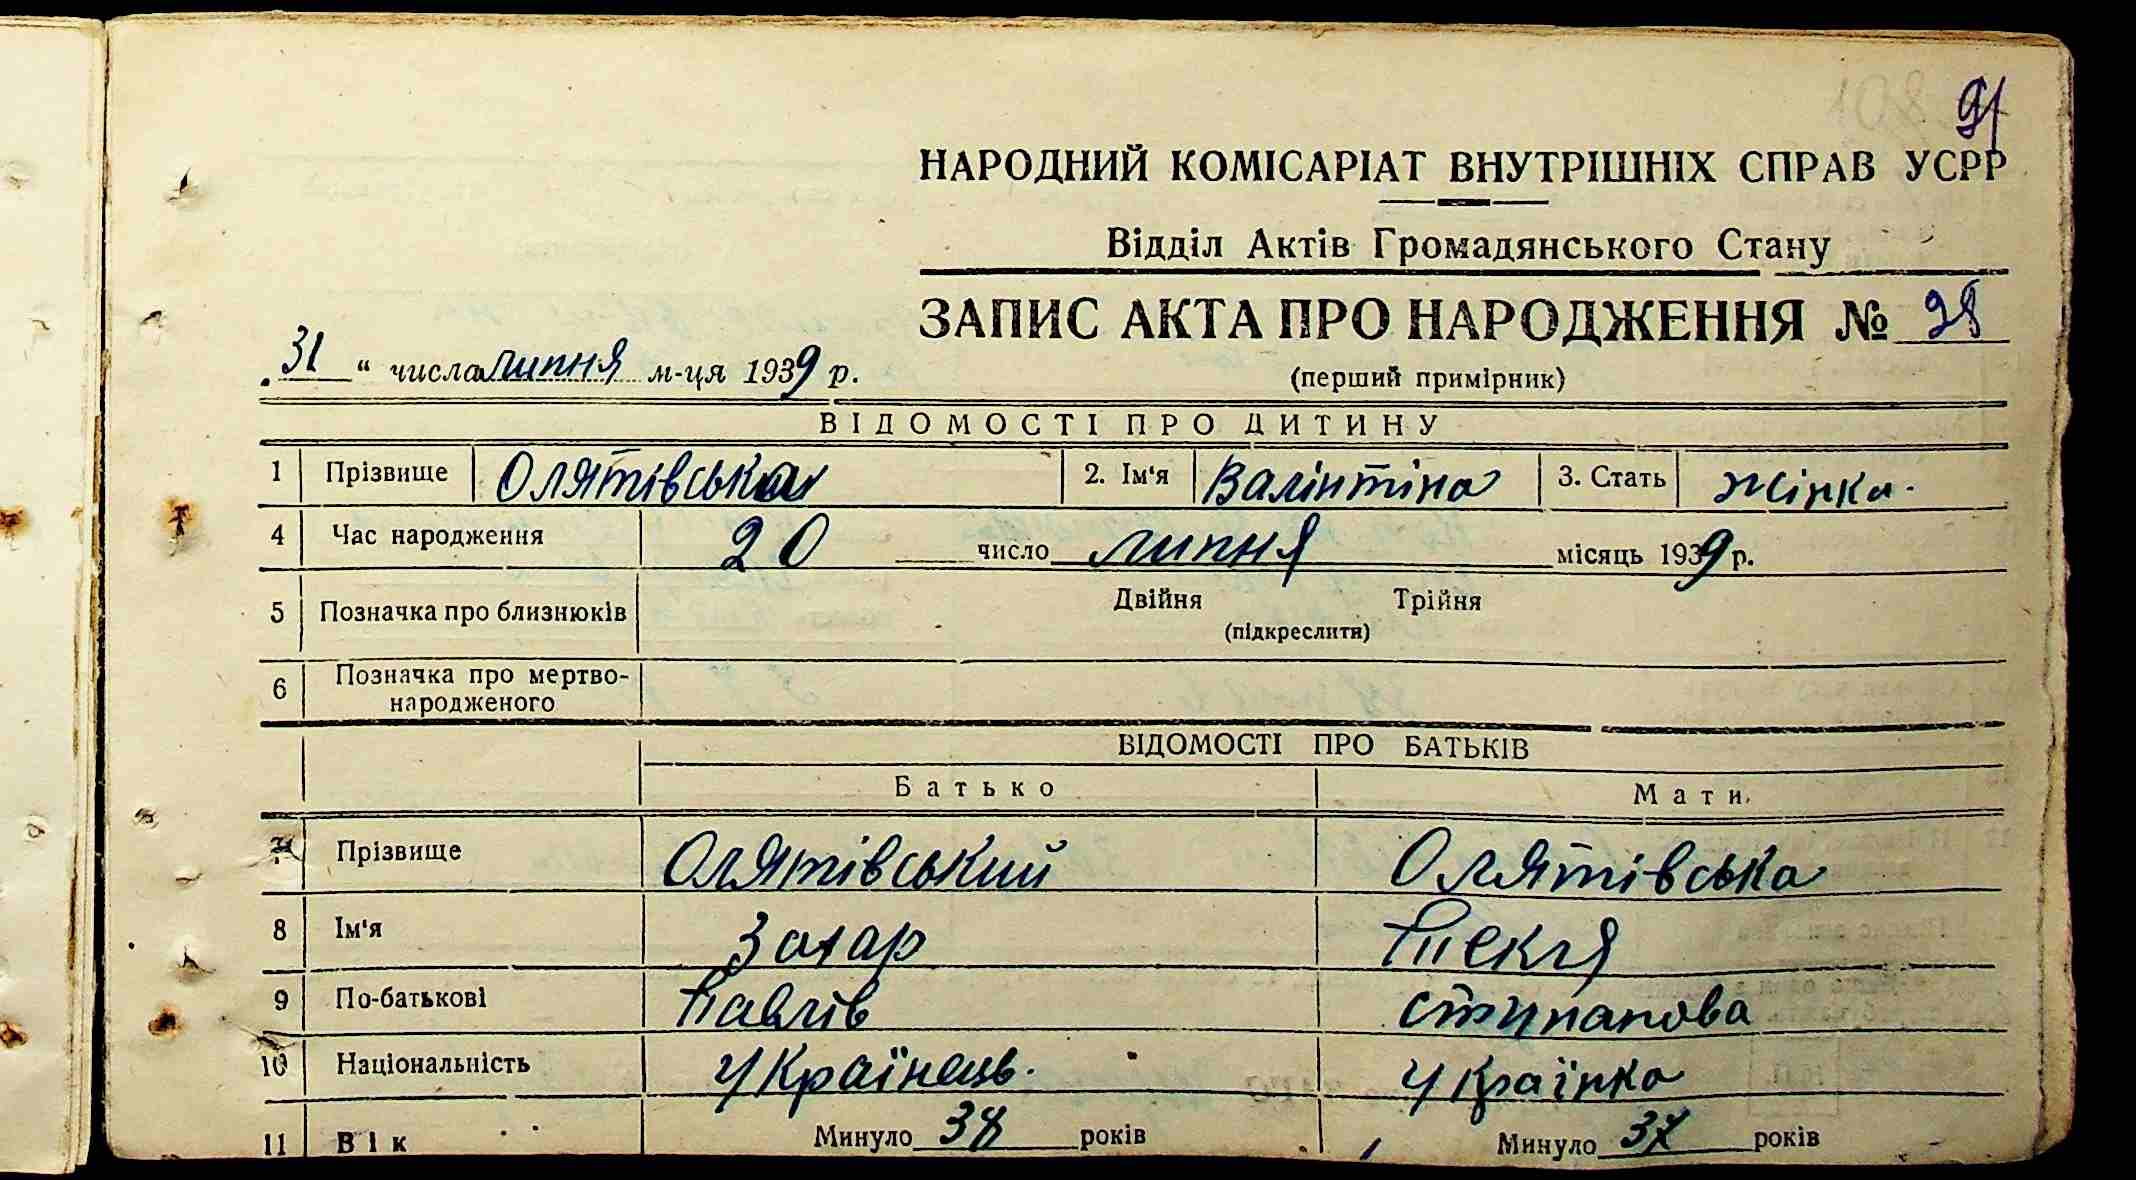 108 91
НАРОДНИЙ КОМІСАРІАТ ВНУТРІШНІХ СПРАВ УСРР
Відділ Актів Громадянського Стану
ЗАПИС АКТА ПРО НАРОДЖЕННЯ № 98
„31“ числа липня м-ця 1939 р.
(перший примірник)
ВІДОМОСТІ ПРО ДИТИНУ
1 Прізвище Олятівська 2. Ім'я Валінтіна 3. Стать жінка.
4 Час народження 20 число липня місяць 1939 р.
5 Позначка про близнюків Двійня Трійня
(підкреслити)
6 Позначка про мертво-
народженого
ВІДОМОСТІ ПРО БАТЬКІВ
Батько Мати
7 Прізвище Олятівський Олятівська
8 Ім'я Захар Текля
9 По-батькові Павлів Ступанова
10 Національність Українець. Українка
11 Вік Минуло 38 років Минуло 37 років